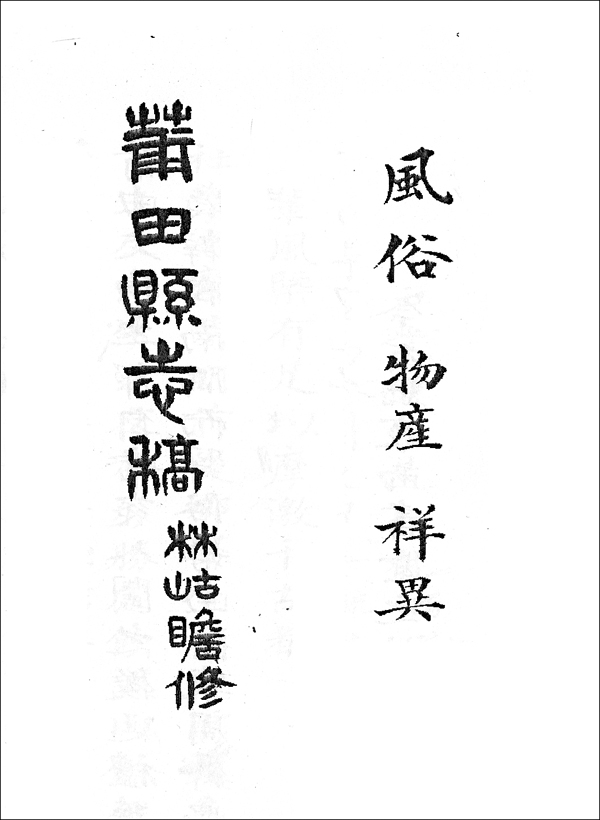 風俗 物產 祥異
莆田縣志稿
林岵瞻修